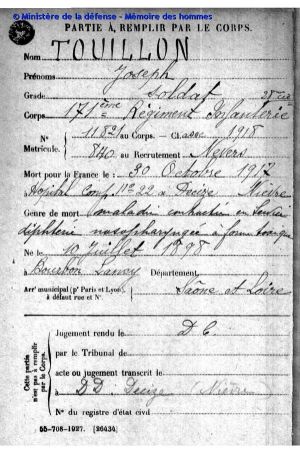 © Ministère de la défense - Mémoire des hommes
PARTIE À REMPLIR PAR LE CORPS.
Nom TOUILLON
Prénoms Joseph
Grade Soldat
Corps 171ème Régiment Infanterie
N° 11821 au Corps. — Classe 1918
Matricule. 840 au Recrutement Nevers
Mort pour la France le 30 Octobre 1917
à Hôpital Comp. n° 22 à Decize Nièvre
Genre de mort maladie contractée en service
diphtérie nasopharyngée à forme toxique
Né le 10 Juillet 1898
à Bourbon Lancy Département
Arrt municipal (pr Paris et Lyon), Saône et Loire
à défaut rue et N°.
Cette partie n'est pas à remplir par le Corps.
Jugement rendu le D.C.
par le Tribunal de
acte ou jugement transcrit le
à DD. Decize (Nièvre)
N° du registre d'état civil
55-708-1927. [26434]